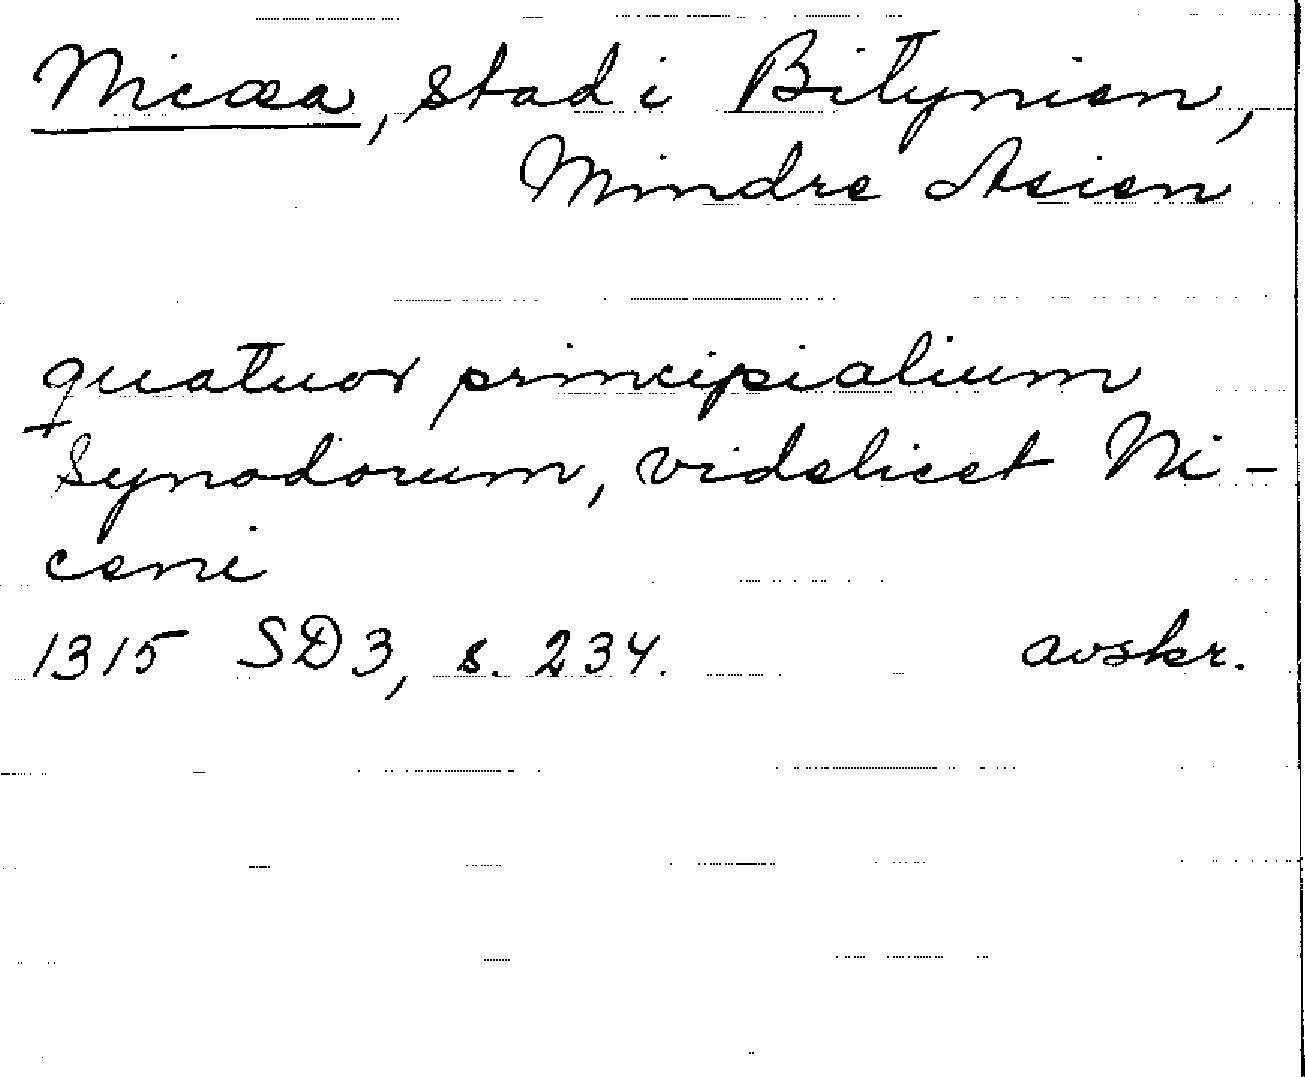 Nicæa, stad i Bitynien,
Mindre Asien
quatuor principialium
Synodorum, videlicet Ni-
ceni
1315 SD3, s. 234. avskr.